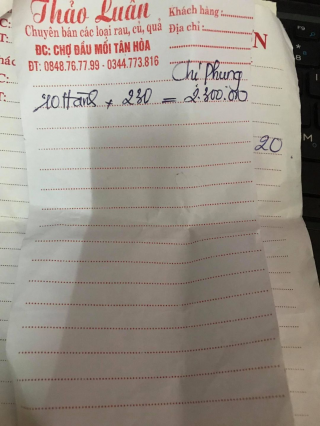 Thảo Luân
Chuyên bán các loại rau, củ, quả
ĐC: CHỢ ĐẦU MỐI TÂN HÒA
ĐT: 0848.76.77.99 - 0344.773.816
Khách hàng:
Địa chỉ:
N
Chị Phung
10 Hàng × 230 = 2.300.000
20